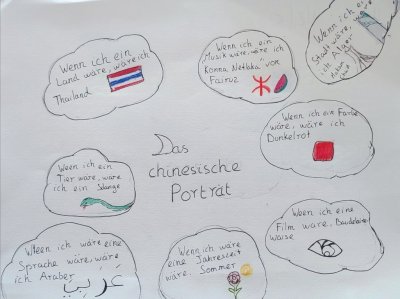 Wenn ich ein
Land wäre, wäre ich
Thailand
Wenn ich ein
Musik wäre, wäre ich
"Konna Netlaka" von
Fairuz
Wenn ich ein
Stadt wäre, wäre
ich Alger
Wenn ich ein Farbe
wäre, wäre ich
Donkelrot
Das
chinesische
Porträt
Ween ich ein
Tier wäre, wäre
ich ein Slange
Ween ich eine
Film ware, Baudelaire
waise
Ween ich wäre eine
Sprache wäre, wäre
ich Araber
عَرَبي
Wenn ich wäre
eine Jahreszeit
wäre, Sommer